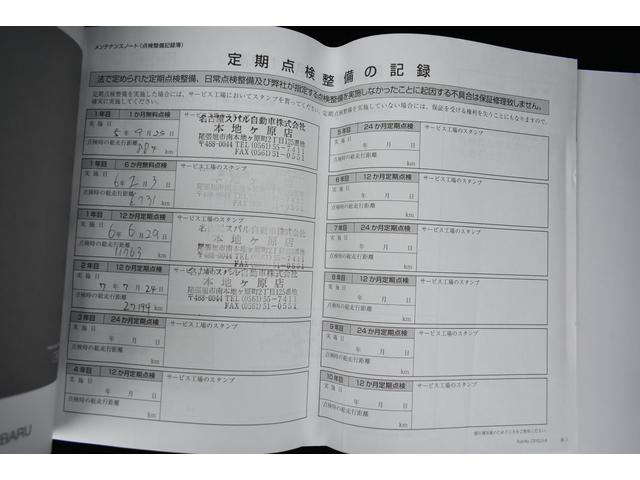 メンテナンスノート(点検整備記録簿)
定期点検整備の記録
法で定められた定期点検整備、日常点検整備及び弊社が指定する点検整備を実施しなかったことに起因する不具合は保証修理致しません。
定期点検整備を実施した場合には、サービス工場においてスタンプを貰ってください。定期点検整備を実施していない場合には、保証を受ける権利を失うことにもなりますので、
確実に実施してください。
1年目 1か月無料点検 サービス工場のスタンプ
実施日 5年9月25日
点検時の総走行距離
km
名古屋スバル自動車株式会社
本地ヶ原店
尾張旭市南本地ヶ原町2丁目125番地
〒488-0044 TEL(0561)55-7411
FAX(0561)51-0551
1年目 6か月無料点検 サービス工場のスタンプ
実施日 6年2月3日
点検時の総走行距離
6731 km
1年目 12か月定期点検 サービス工場のスタンプ
実施日 6年6月29日
点検時の総走行距離
11763 km
名古屋スバル自動車株式会社
本地ヶ原店
2年目 12か月定期点検 サービス工場のスタンプ
実施日 7年7月24日
点検時の総走行距離
km
名古屋スバル自動車株式会社
本地ヶ原店
尾張旭市南本地ヶ原町2丁目125番地
〒488-0044 TEL(0561)55-7411
FAX(0561)51-0551
3年目 24か月定期点検 サービス工場のスタンプ
実施日 年 月 日
点検時の総走行距離
km
4年目 12か月定期点検 サービス工場のスタンプ
実施日 年 月 日
点検時の総走行距離
km
5年目 24か月定期点検 サービス工場のスタンプ
実施日 年 月 日
点検時の総走行距離
km
6年目 12か月定期点検 サービス工場のスタンプ
実施日 年 月 日
点検時の総走行距離
km
7年目 24か月定期点検 サービス工場のスタンプ
実施日 年 月 日
点検時の総走行距離
km
8年目 12か月定期点検 サービス工場のスタンプ
実施日 年 月 日
点検時の総走行距離
km
9年目 24か月定期点検 サービス工場のスタンプ
実施日 年 月 日
点検時の総走行距離
km
10年目 12か月定期点検 サービス工場のスタンプ
実施日 年 月 日
点検時の総走行距離
km
BARU